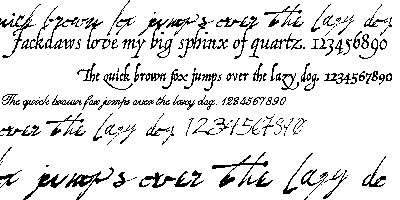 quick brown fox jumps over the lazy dog
Jackdaws love my big sphinx of quartz. 1234567890
The quick brown fox jumps over the lazy dog. 1234567890
The quick brown fox jumps over the lazy dog. 1234567890
over the lazy dog 1234567890
jumps over the lazy do